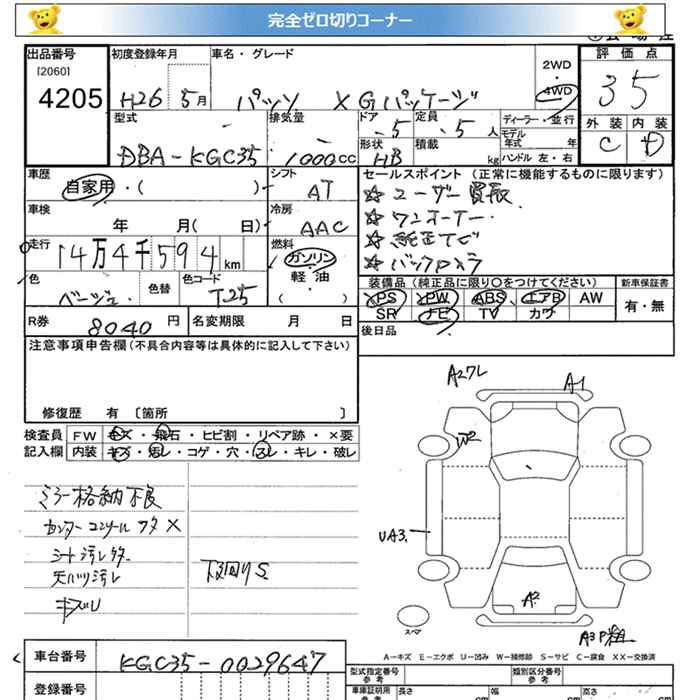 完全ゼロ切りコーナー
出品番号 初度登録年月 車名・グレード 評価点
[2060] 2WD
4205 H26 5月 パッソ X Gパッケージ ・4WD 35
型式 排気量 ドア 定員 ディーラー・並行 外装 内装
DBA-KGC35 1000cc 5 5人 モデル年式 年 C D
形状 積載
HB kg ハンドル 左・右
車歴 シフト セールスポイント (正常に機能するものに限ります)
自家用・( ) AT ☆ユーザー買取
車検 冷房 ☆ワンオーナー
年 月( 日) AAC ☆純正ナビ
走行 燃料 ☆バックカメラ
14万4千594km ガソリン
色 色替 色コード 軽・油 装備品 (純正品に限り○をつけてください) 新車保証書
ベージュ T25 ・( ) PS PW ABS エアB AW 有・無
R券 8040円 名変期限 月 日 SR ナビ TV カワ
注意事項申告欄(不具合内容等は具体的に記入して下さい) 後日品
修復歴 有 〔箇所 〕
検査員 FW キズ・飛石・ヒビ割・リペア跡・×要
記入欄 内装 キズ・汚レ・コゲ・穴・スレ・キレ・破レ
ミラー格納不良
センターコンソールフタ×
シート汚レ
天バリ汚レ 下回りS
キズレ
A2 A1
W2
UA3.
A2
スペア
A3P
A-キズ E-エクボ U-凹み W-補修跡 S-サビ C-腐食 XX-交換済
車台番号 KGC35-0029647 型式指定番号 参考 類別区分番号 参考
登録番号 車庫証明用 参考 長さ cm 幅 cm 高さ cm